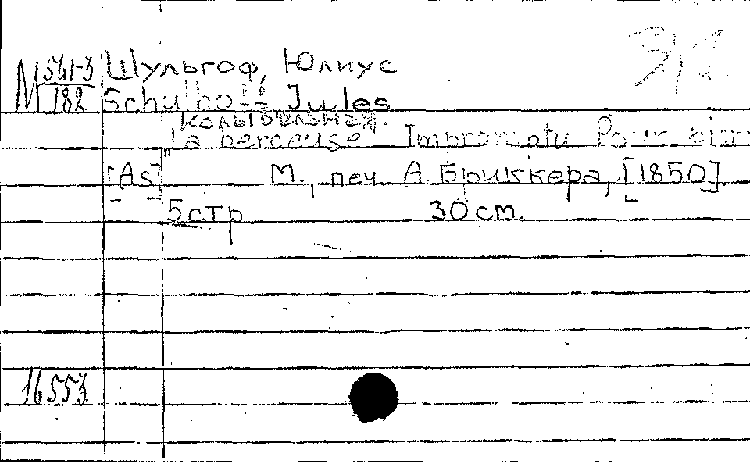 3/2
М 561-3 Шульгоф, Юлиус
182 Schulhoff Jules
Колыбельная.
"La berceuse. Impromptu Pour
[As] М., печ. А. Бриккера, [1850]
5 стр 30 см.
16553